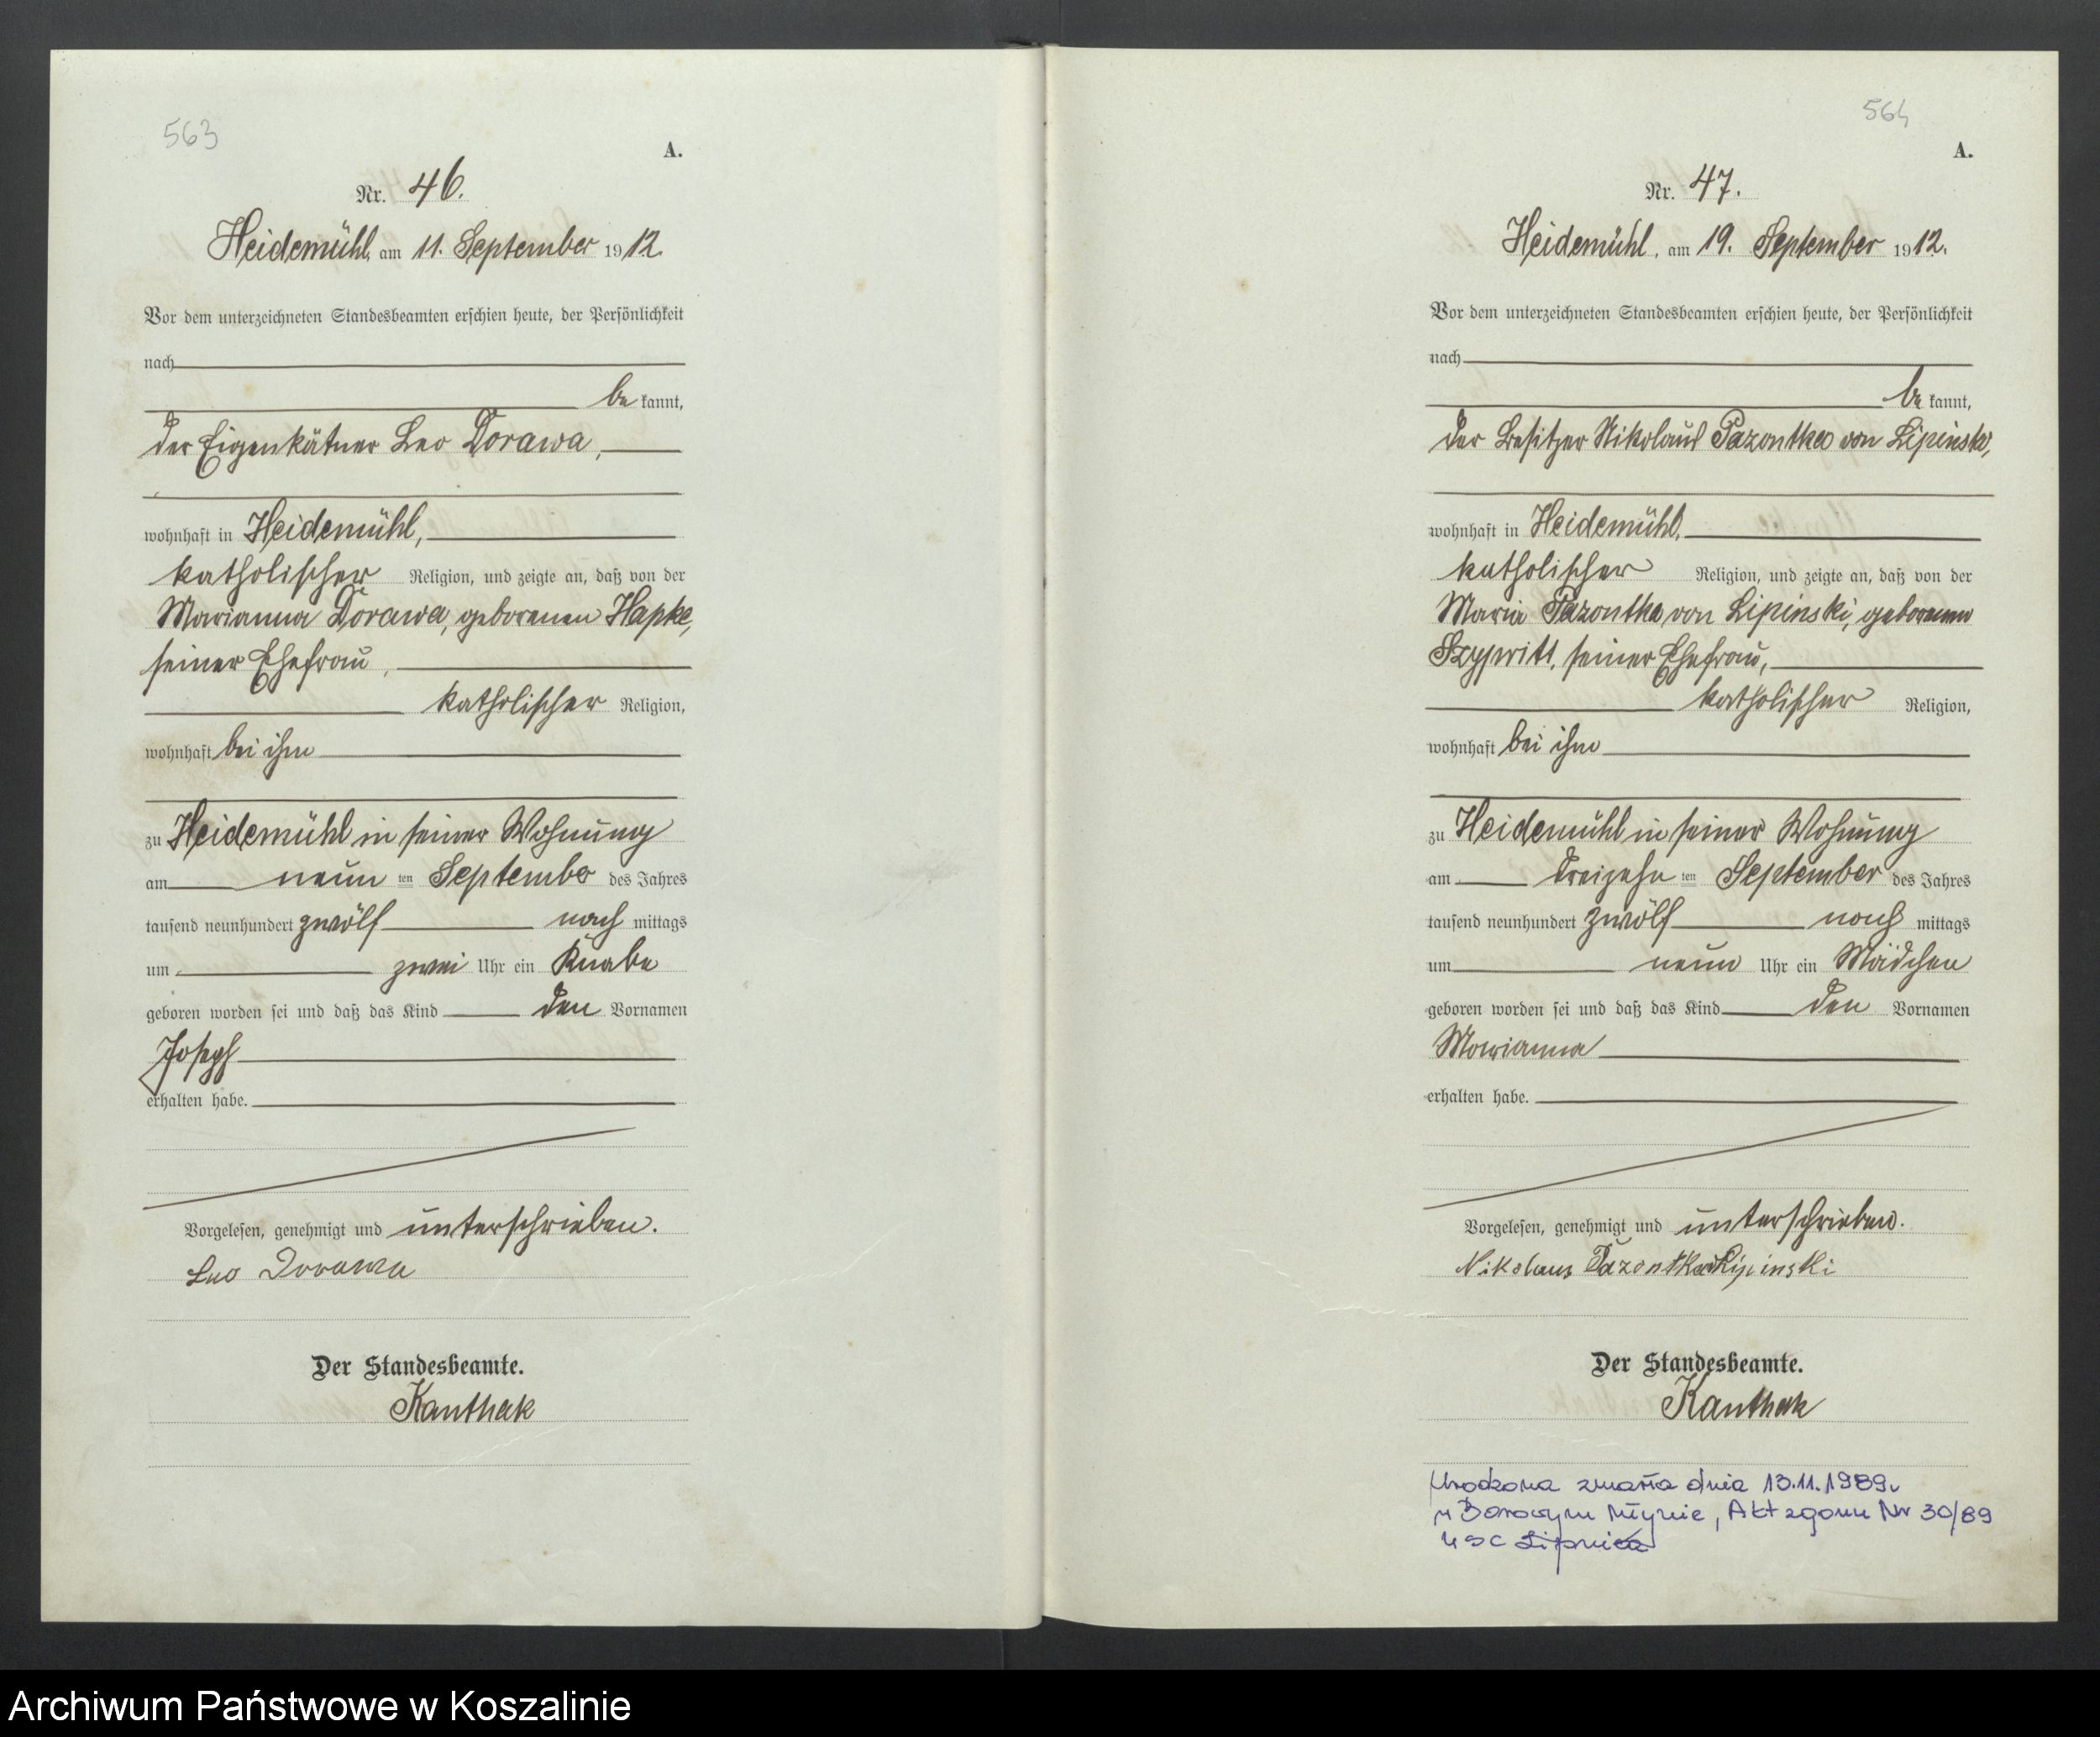 563
A.
Nr. 46.
Heidemühl, am 11. September 1912.
Vor dem unterzeichneten Standesbeamten erschien heute, der Persönlichkeit
nach
be kannt,
der Eigenkätner Leo Dorawa,
wohnhaft in Heidemühl,
katholischer Religion, und zeigte an, daß von der
Marianna Dorawa, geborenen Hapke,
seiner Ehefrau,
katholischer Religion,
wohnhaft bei ihm
zu Heidemühl in seiner Wohnung
am neun ten September des Jahres
tausend neunhundert zwölf nach mittags
um zwei Uhr ein Knabe
geboren worden sei und daß das Kind den Vornamen
Joseph
erhalten habe.
Vorgelesen, genehmigt und unterschrieben.
Leo Dorawa
Der Standesbeamte.
Kanthak
564
A.
Nr. 47.
Heidemühl, am 19. September 1912.
Vor dem unterzeichneten Standesbeamten erschien heute, der Persönlichkeit
nach
be kannt,
der Besitzer Nikolaus Pazontka von Lipinski,
wohnhaft in Heidemühl,
katholischer Religion, und zeigte an, daß von der
Maria Pazontka von Lipinski, geborenen
Szypritt, seiner Ehefrau,
katholischer Religion,
wohnhaft bei ihm
zu Heidemühl in seiner Wohnung
am dreizehn ten September des Jahres
tausend neunhundert zwölf nach mittags
um neun Uhr ein Mädchen
geboren worden sei und daß das Kind den Vornamen
Marianna
erhalten habe.
Vorgelesen, genehmigt und unterschrieben.
Nikolaus Pazontka Lipinski
Der Standesbeamte.
Kanthak
Urodzona zmarła dnia 13.11.1989r
w Borowym Młynie, Akt zgonu Nr 30/89
USC Lipnica
Archiwum Państwowe w Koszalinie